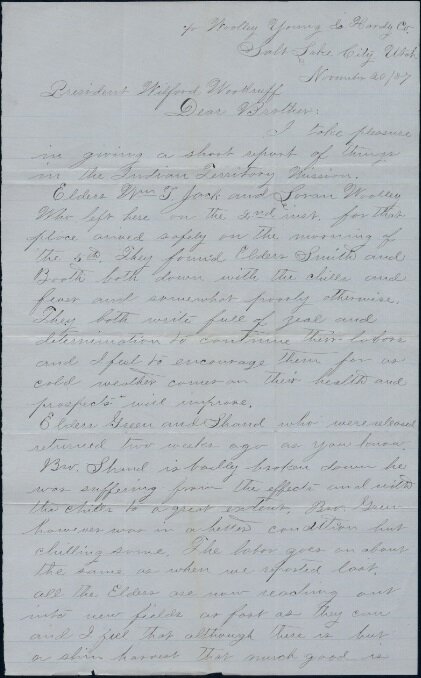 c/o Woolley Young & Hardy Co.
Salt Lake City Utah
November 20/87
President Wilford Woodruff
Dear Brother:
I take pleasure
in giving a short report of things
in the Indian Territory Mission.
Elders Wm T. Jack and Loran Woolley
Who left here on the 3rd inst. for that
place arived safely on the morning of
the 5th. They found Elders Smith and
Booth both down with the chills and
fever and somewhat poorly otherwise.
They both write full of zeal and
determination to continue their labors
and I feel to encourage them for as
cold weather comes on their health and
prospects will improve.
Elders Green and Shand who were released
returned two weeks ago as you know
Bro. Shand is badly broken down he
was suffering from the effects and with
the chills to a great extent, Bro. Green
however was in a better condition but
chilling some. The labor goes on about
the same as when we reported last.
all the Elders are now reaching out
into new fields as fast as they can
and I feel that although there is but
a slim harvest that much good is